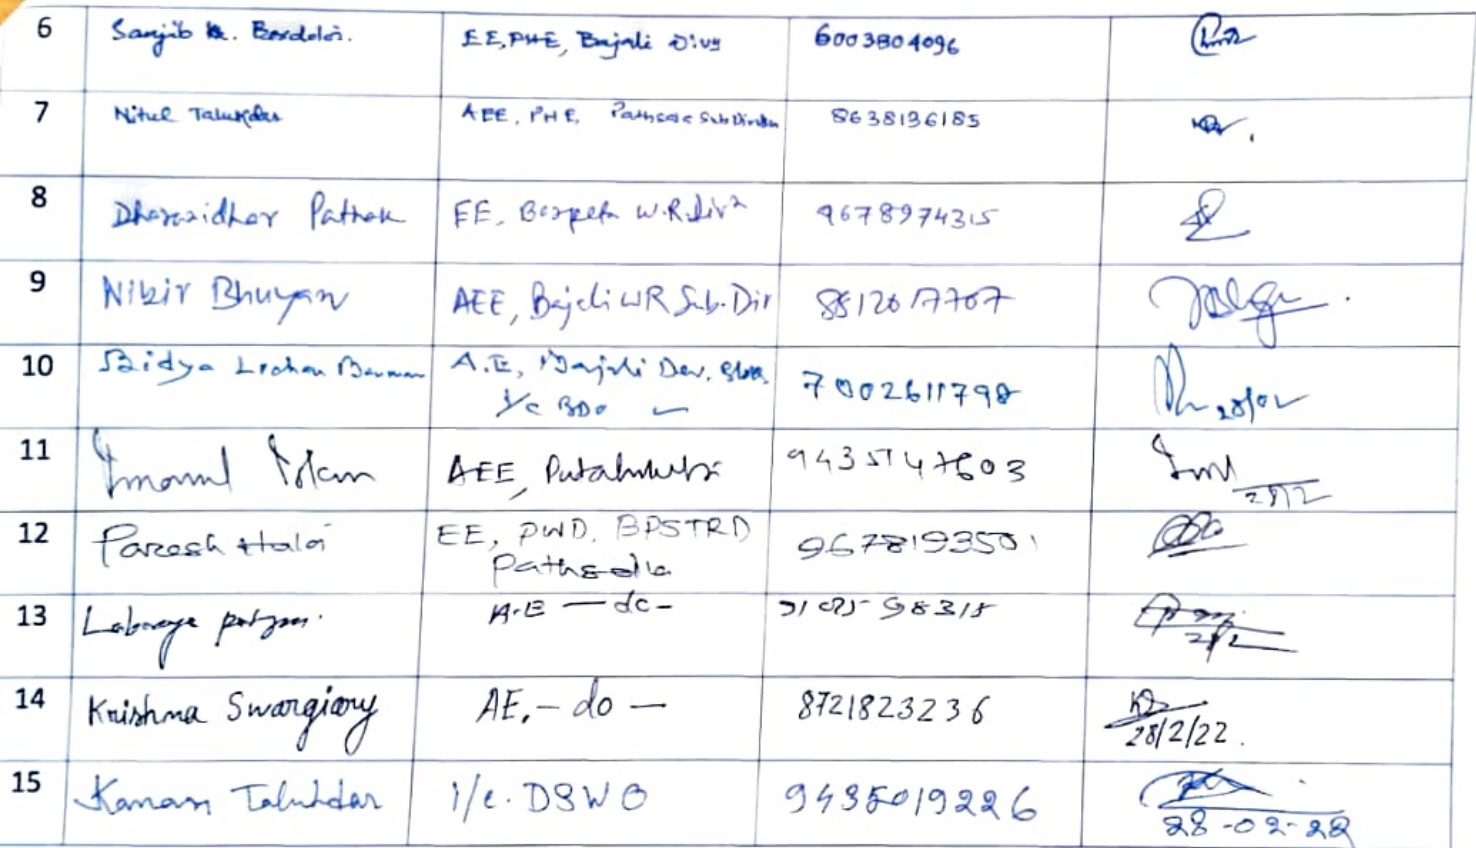 6 Sanjib K. Bordoloi. EE, PHE, Bajali Divn 6003804096
7 Nitul Talukdar AEE, PHE, Pathsala Sub Division 8638136185
8 Dharanidhar Pathak EE, Barpeta W.R. Divn 9678974315
9 Nibir Bhuyan AEE, Bajali WR Sub. Div 8812017707
10 Bidya Lochan Barman A.E, Bajali Dev. Block 7002611798
I/c BDO
11 Imamul Islam AEE, 9435147603
28/2
12 Paresh Haloi EE, PWD, BPSTRD 9678193501
Pathsala
13 A.E — do –
14 Krishna Swargiary AE. – do — 8721823236
28/2/22.
15 Kanan Talukdar I/c. DSWO 9435019226
28-02-22